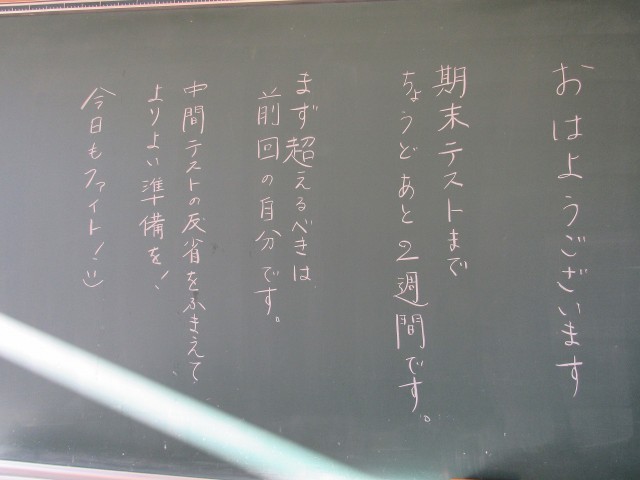 おはようございます
期末テストまで
ちょうどあと2週間です。
まず超えるべきは
前回の自分です。
中間テストの反省をふまえて、
よりよい準備を!
今日もファイト!